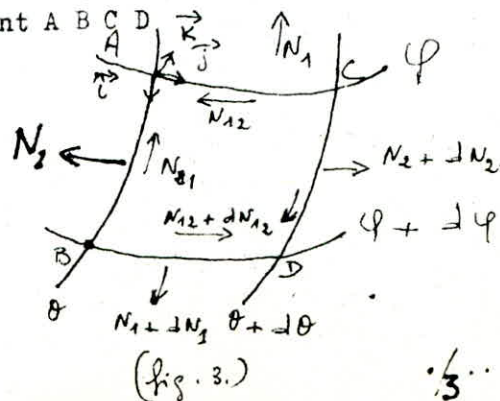 nt A B C D
A D K⃗ j⃗ N1 C φ
i⃗ N12
N2 N21 N2 + dN2
N12 + dN12 φ + dφ
B D
θ N1 + dN1 θ + dθ
(fig. 3.)
./3...